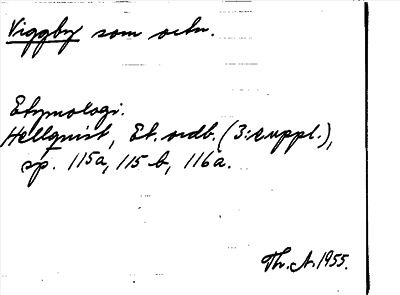 Viggby som ortn.
Etymologi.
Hellquist, Et. ordb. (3:suppl.),
sp. 115a, 115 b, 116a.
Th. A. 1955.